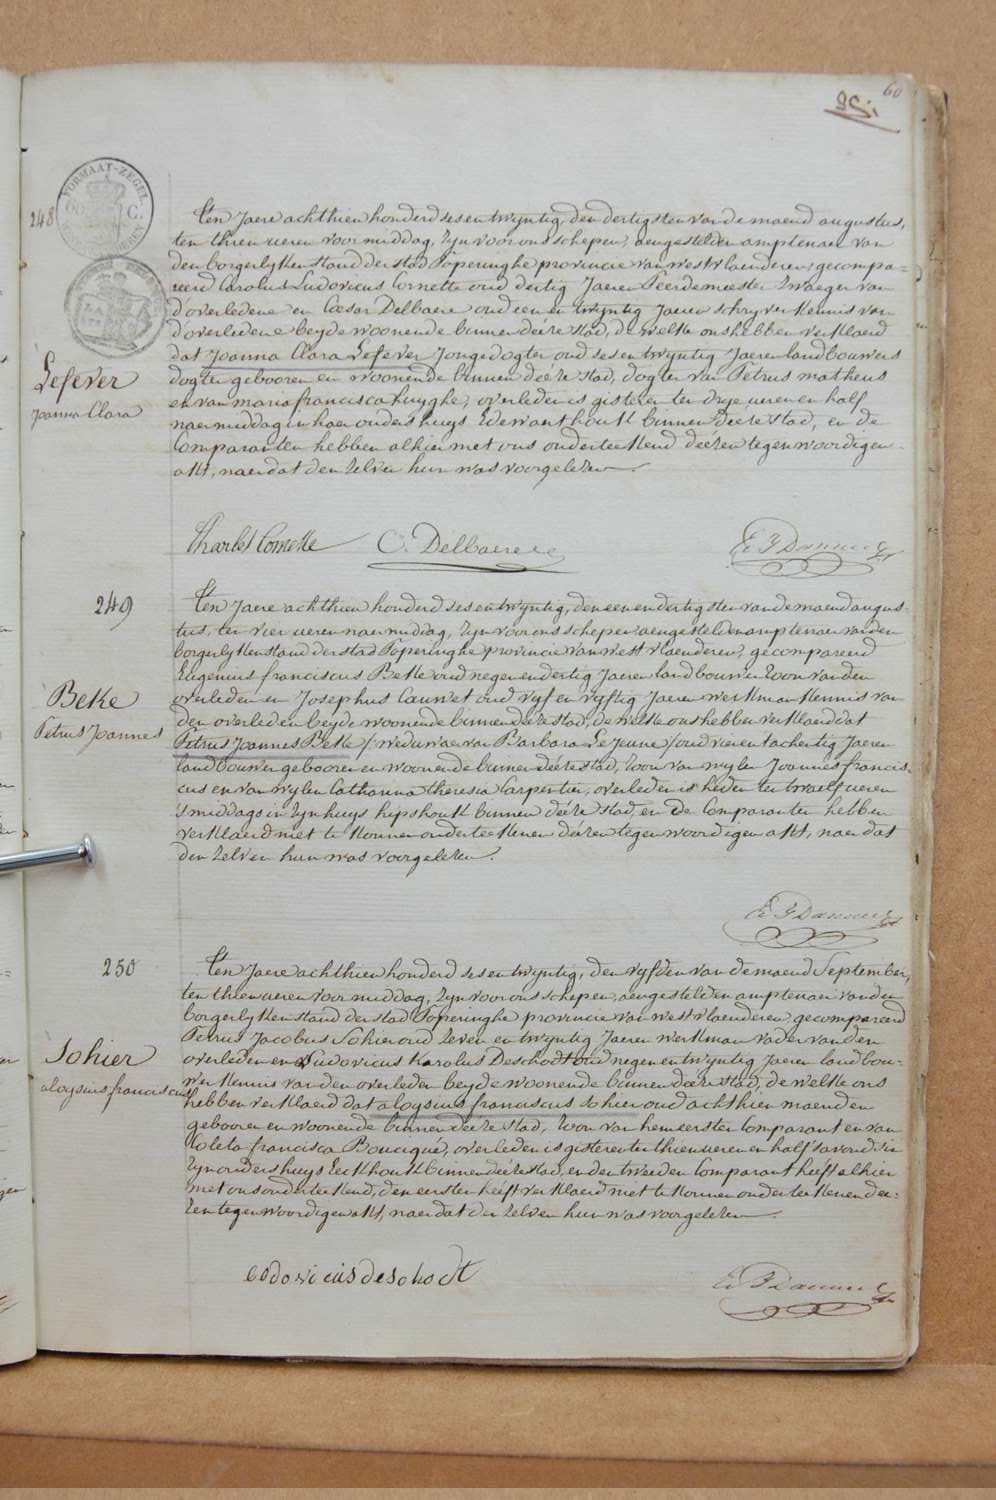 60
248
FORMAAT-ZEGEL
C.
Lefever
Joanna Clara
Ten Jaere achthien honderd ses en twyntig, den dertigsten van de maend augustus,
ten thien ueren voor middag, zyn voor ons schepen, aengestelden amptenaer van
den borgerlyken stand der stad Poperinghe provincie van west vlaenderen, gecompa=
reerd Carolus Ludovicus Cornette oud dertig Jaeren Peerdemeester zwaeger van
d'overledene en Cæsar Delbaere oud een en twyntig Jaeren schryver Kennis van
d'overledene beyde woonende binnen deéze stad, de welke ons hebben verklaerd
dat Joanna Clara Lefever Jongedogter oud ses en twyntig Jaeren landbouwers
dogter gebooren en woonende binnen deéze stad, dogter van Petrus matheus
en van maria francisca huyghe, overleden is gisteren ten drye ueren en half
naermiddag in haer ouders huys Edewaerthoutk binnen deéze stad, en de
Comparanten hebben alhier met ons onderteekend deézen tegenwoordigen
akt, naer dat den zelven hun was voorgelezen.
Charles Cornette C. Delbaere
249
Beke
Petrus Joannes
Ten Jaere achthien honderd ses en twyntig, den een en dertigsten van de maend augus-
tus, ten vier ueren naermiddag, zyn voor ons schepen aengestelden amptenaer van den
borgerlyken stand der stad Poperinghe provincie van west vlaenderen, gecompareerd
Eugenius franciscus Beke oud negen en dertig Jaeren landbouwer zoon van den
overleden en Josephus Cauwet oud vyf en vyftig Jaeren werkman Kennis van
den overleden beyde woonende binnen deéze stad, de welke ons hebben verklaerd dat
Petrus Joannes Beke /:weduwaer van Barbara Le Jeune:/ oud vier en tachentig Jaeren
landbouwer gebooren en woonende binnen deéze stad, zoon van wylen Joannes francis-
cus en van wylen Catharina theresia Carpentier, overleden is heden ten twaelf ueren
's middags in zyn huys hipshoutk binnen deéze stad, en de Comparanten hebben
verklaerd niet te konnen onderteekenen deézen tegenwoordigen akt, naer dat
den zelven hun was voorgelezen.
250
Sohier
aloysius franciscus
Ten Jaere achthien honderd ses en twyntig, den vyfden van de maend September,
ten thien ueren voor middag, zyn voor ons schepen, aengestelden amptenaer van den
borgerlyken stand der stad Poperinghe provincie van west vlaenderen, gecompareerd
Petrus Jacobus Sohier oud zeven en twyntig Jaeren werkman vader van den
overleden en Ludovicus Karolus Deschodt oud negen en twyntig Jaeren landbou-
wer Kennis van den overleden beyde woonende binnen deéze stad, de welke ons
hebben verklaerd dat aloysius franciscus Sohier oud achthien maenden
gebooren en woonende binnen deéze stad, zoon van hem eersten Comparant en van
Coleta francisca Boucqué, overleden is gisteren ten thien ueren en half 's avonds in
zyn ouders huys Eeckhoutk binnen deéze stad, en den tweeden Comparant heeft alhier
met ons onderteekend, den eersten heeft verklaerd niet te konnen onderteekenen deé-
zen tegenwoordigen akt, naer dat den zelven hun was voorgelezen.
Lodovicus deschodt